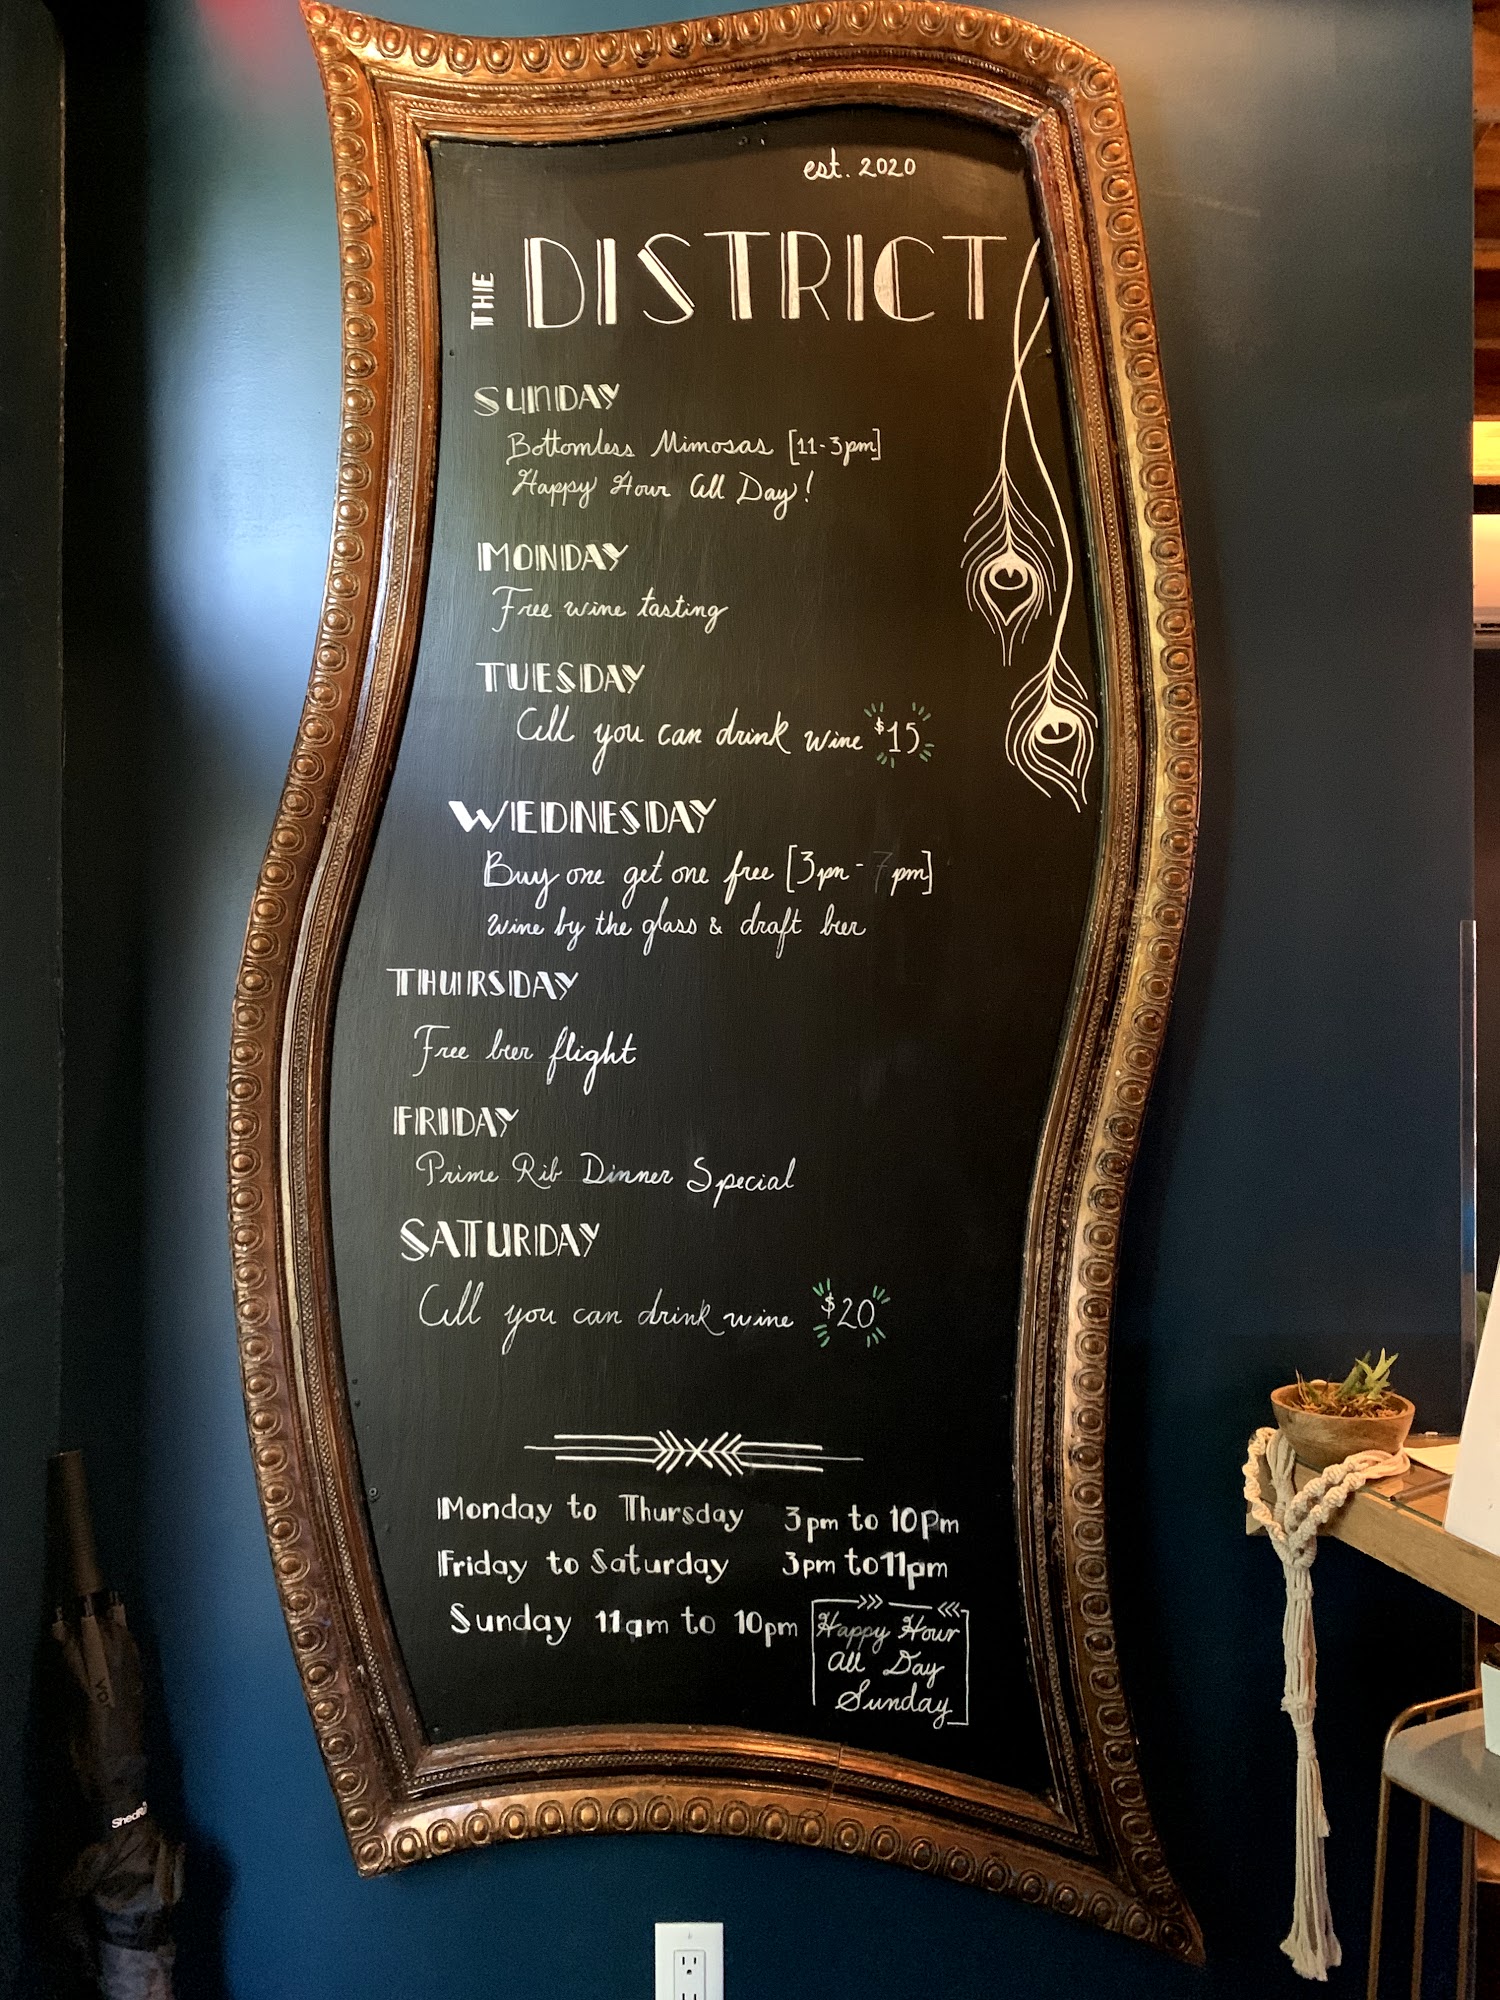 est. 2020
THE DISTRICT
SUNDAY
Bottomless Mimosas [11-3pm]
Happy Hour All Day!
MONDAY
Free wine tasting
TUESDAY
All you can drink wine $15
WEDNESDAY
Buy one get one free [3pm - 7pm]
wine by the glass & draft beer
THURSDAY
Free beer flight
FRIDAY
Prime Rib Dinner Special
SATURDAY
All you can drink wine $20
Monday to Thursday 3pm to 10pm
Friday to Saturday 3pm to 11pm
Sunday 11am to 10pm
Happy Hour
All Day
Sunday